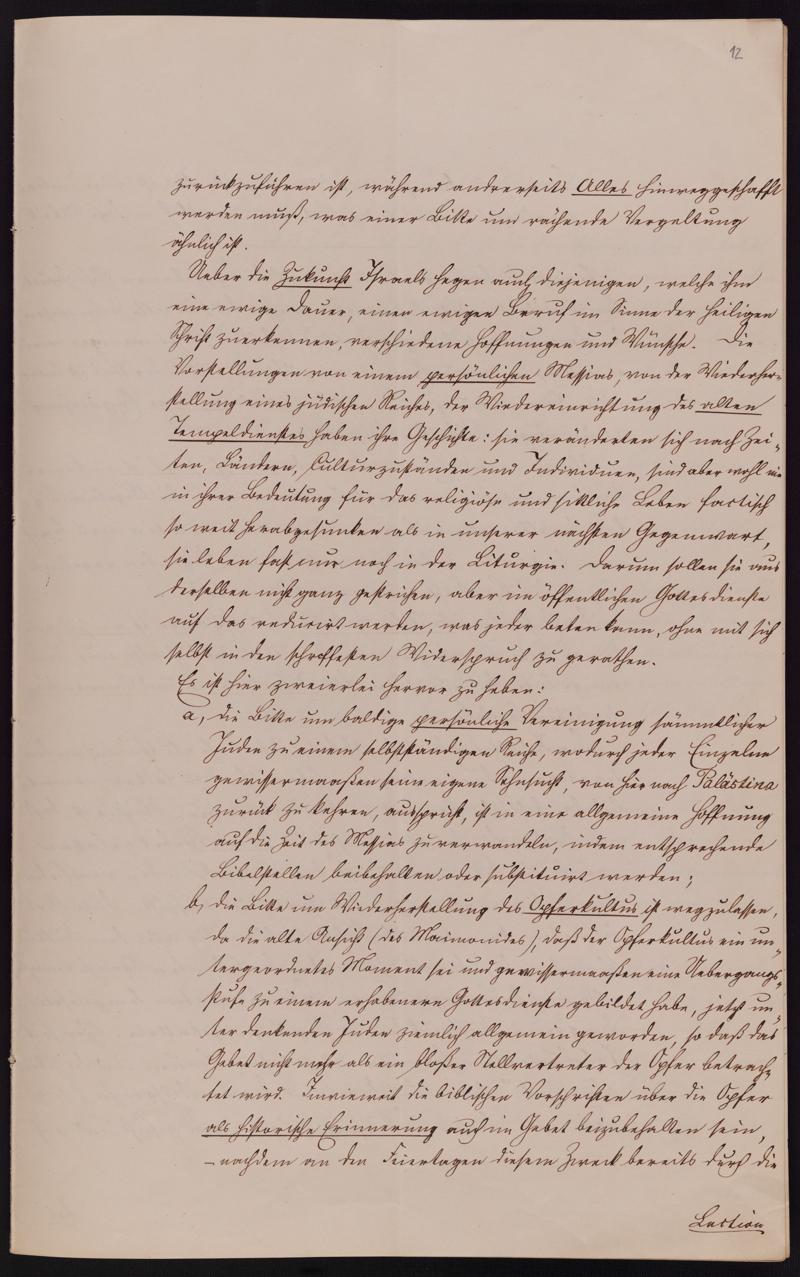 12
zurückzuführen ist, während andrerseits Alles hinweggeschafft
werden muß, was einer Bitte um rächende Vergeltung
ähnlich ist.
Ueber die Zukunft Israels hegen auch diejenigen, welche ihm
eine ewige Dauer, einen ewigen Beruf im Sinne der heiligen
Schrift zuerkennen, verschiedene Hoffnungen und Wünsche. Die
Vorstellungen von einem persönlichen Messias, von der Wiederher-
stellung eines jüdischen Reiches, der Wiedereinrichtung des alten
Tempeldienstes haben ihre Geschichte: sie veränderten sich nach Zei-
ten, Ländern, Culturzuständen und Individuen, sind aber wohl nie
in ihrer Bedeutung für das religiöse und sittliche Leben factisch
so weit herabgesunken als in unserer nächsten Gegenwart,
sie leben fast nur noch in der Liturgie. Darum sollen sie aus
derselben nicht ganz gestrichen, aber im öffentlichen Gottesdienste
auf das reducirt werden, was jeder beten kann, ohne mit sich
selbst in den schroffesten Widerspruch zu gerathen.
Es ist hier zweierlei hervor zu heben:
a, die Bitte um baldige persönliche Vereinigung sämmtlicher
Juden zu einem selbstständigen Reiche, wodurch jeder Einzelne
gewissermaaßen seine eigene Sehnsucht, von hier nach Palästina
zurück zu kehren, ausspricht, ist in eine allgemeine Hoffnung
auf die Zeit des Messias zu verwandeln, indem entsprechende
Bibelstellen beibehalten oder substituirt werden;
b, die Bitte um Wiederherstellung des Opferkultus ist wegzulassen,
da die alte Ansicht (des Maimonides), daß der Opferkultus ein un-
tergeordnetes Moment sei und gewissermaaßen eine Uebergangs-
stufe zu einem erhabenern Gottesdienste gebildet habe, jetzt un-
ter denkenden Juden ziemlich allgemein geworden, so daß das
Gebet nicht mehr als ein bloßer Stellvertreter der Opfer betrach-
tet wird. Inwieweit die biblischen Vorschriften über die Opfer
als historische Erinnerung auch im Gebet beizubehalten sein,
– nachdem an den Feiertagen diesem Zweck bereits durch die
Lection